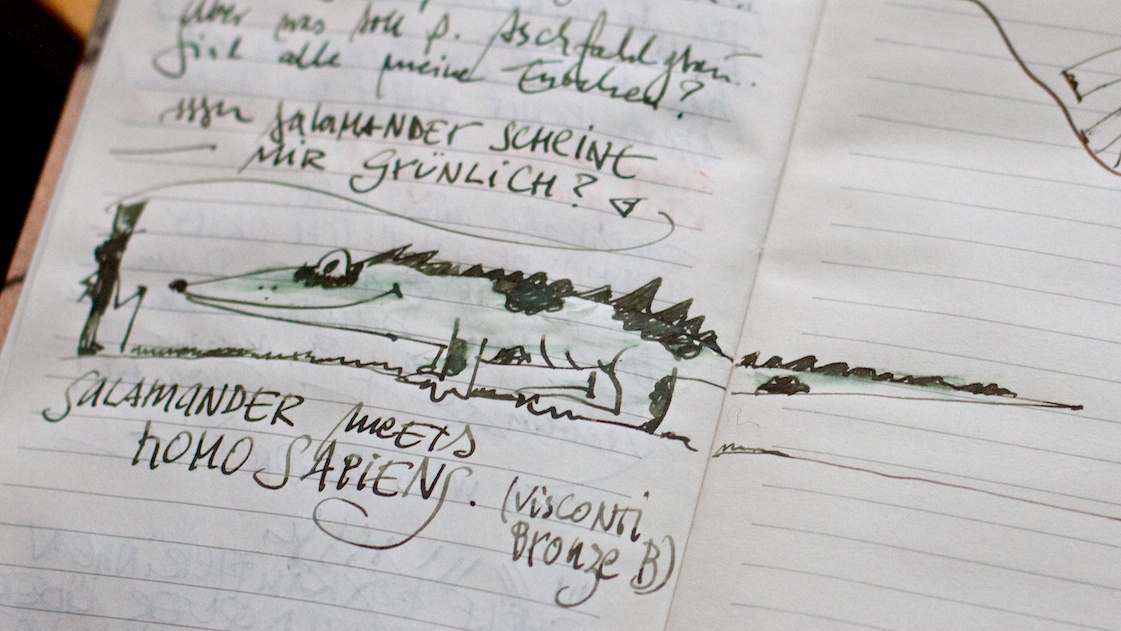 Aber was soll p. Aschfahl grau..
Sind alle meine Enochen?
SALAMANDER SCHEINT
MIR GRÜNLICH?
SALAMANDER MEETS
HOMO SAPIENS.
(VISCONTI
BRONZE B)